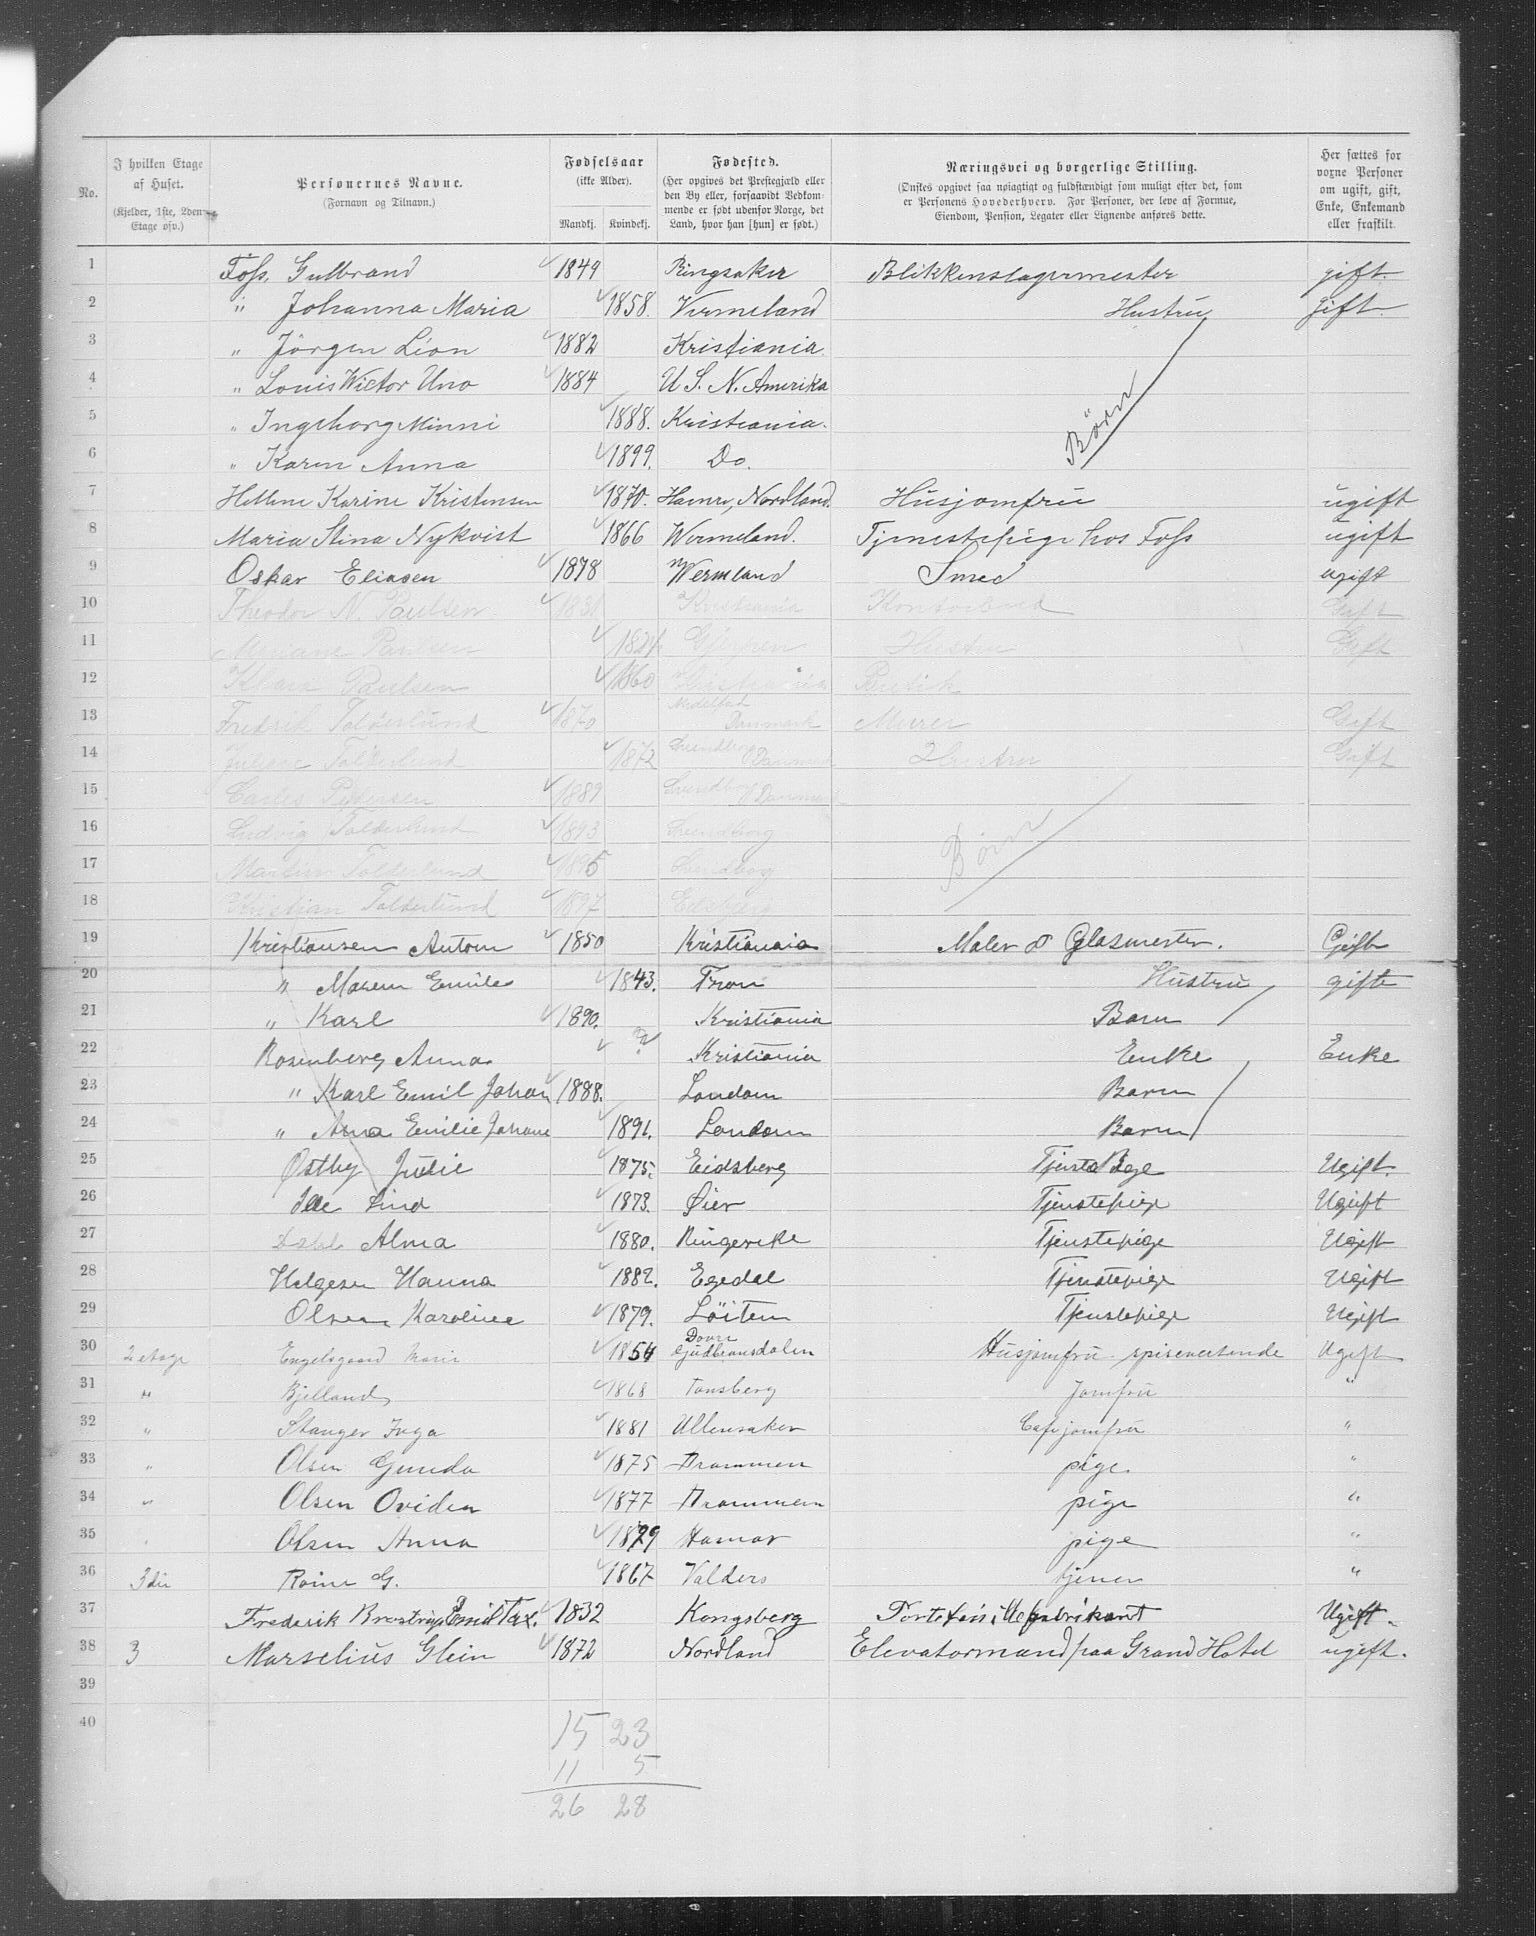 No.
I hvilken Etage af Huset. (Kjelder, 1ste, 2den Etage osv.)
Personernes Navne. (Fornavn og Tilnavn.)
Fødselsaar (ikke Alder). Mandkj. Kvindekj.
Fødested. (Her opgives det Prestegjæld eller den By eller, forsaavidt Vedkommende er født udenfor Norge, det Land, hvor han [hun] er født.)
Næringsvei og borgerlige Stilling. (Ønskes opgivet saa nøiagtigt og fuldstændigt som muligt efter det, som er Personens Hovederhverv. For Personer, der leve af Formue, Eiendom, Pension, Legater eller Lignende anføres dette.)
Her sættes for voxne Personer om ugift, gift, Enke, Enkemand eller fraskilt.
1 Foss, Gulbrand 1849 Ringsaker Blikkenslagermester gift.
2 " Johanna Maria 1858. Vermeland Hustru gift
3 " Jörgen Lion 1882 Kristiania
4 " Louis Wictor Uno 1884 U. S. N. Amerika Börn
5 " Ingeborg Minni 1888. Kristiania.
6 " Karen Anna 1899. Do.
7 Hellene Karine Kristensen 1870. Hamrø, Nordland. Husjomfru ugift
8 Maria Stina Nykvist 1866 Wermeland. Tjenestepige hos Foss ugift
9 Oskar Eliasen 1878 Wermland Smed ugift
10 Theodor N. Paulsen 1831 Kristiania Kontorbud Gift
11 Mariane Paulsen 182 Gjerpen Hustru Gift
12 Klara Paulsen 1860 Kristiania Butik
13 Fredrik Tolderlund 1870 Danmark Murer Gift
14 Juliane Tolderlund 1872 Svendborg Danmark Hustru Gift
15 Carles Petersen 1889 Svendborg Danmark
16 Ludvig Tolderlund 1893 Svendborg Börn
17 Martin Tolderlund 1895 Svendborg
18 Kristian Tolderlund 1897 Esbjerg
19 Kristiansen Antom 1850 Kristiania Maler & Glasmester. Gift
20 " Maren Emilie 1843. Tron Hustru gift
21 " Karl 1890. Kristiania Barn
22 Rosenberg Anna ? Kristiania Enke Enke
23 " Karl Emil Johan 1888. London Barn
24 " Anna Emilie Johane 1891. London Barn
25 Østby Julie 1875. Eidsberg Tjenste Pige Ugift.
26 Lind 1873. Øier Tjenstepige Ugift
27 Dahl Alma 1880. Ringerike Tjenstepige Ugift
28 Helgesen Hanna 1882. Egedal Tjenstepige Ugift
29 Olsen Karoline 1879. Löiten Tjenstepige Ugift
30 2 etage Engelsgaard Marie 1854 Dovre Gudbransdalen Husjomfru spisevertinde Ugift
31 " Bjelland 1868 Tonsberg Jomfru "
32 " Stanger Inga 1881 Ullensaker Cafejomfru "
33 " Olsen Gunda 1875 Drammen pige "
34 " Olsen Ovidia 1877 Drammen pige "
35 Olsen Anna 1879 Hamar pige "
36 3die Roine G. 1867 Valders tjener "
37 Frederik Brostrup Emil Tax. 1832 Kongsberg Ugift
38 3 Marselius Glein 1872 Nordland Elevatormand paa Grand Hotel ugift.
39
40 15 23
11 5
26 28